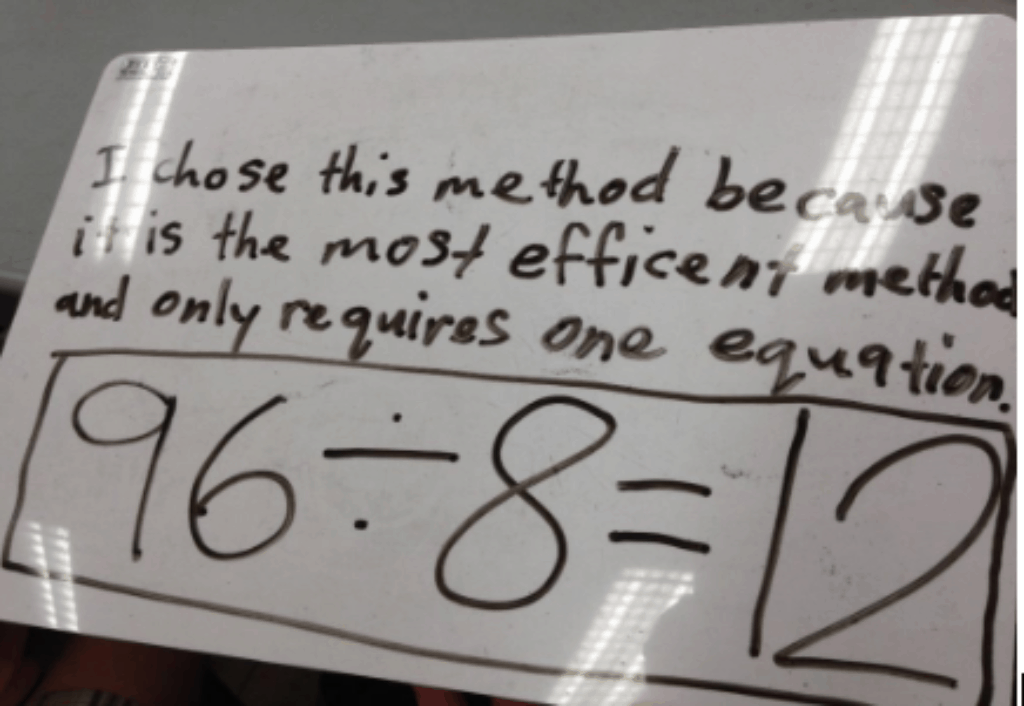 I chose this method because
it is the most efficent method
and only requires one equation.
96 ÷ 8 = 12